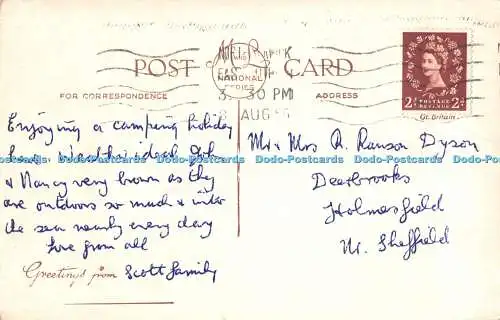 POST CARD
NATIONAL
SERIES
FOR CORRESPONDENCE
ADDRESS
3 30 PM
AUG
2D POSTAGE REVENUE 2D
Gt. Britain
Enjoying a camping holiday
& Nancy very brown as they
are outdoors so much & into
the sea nearly every day
Love from all
Greetings from Scott family
Mr & Mrs R. Ranson Dyson
Deerbrooks
Holmesfield
Nr. Sheffield
Dodo-Postcards Dodo-Postcards Dodo-Postcards Dodo-Postcards Dodo-Postcards